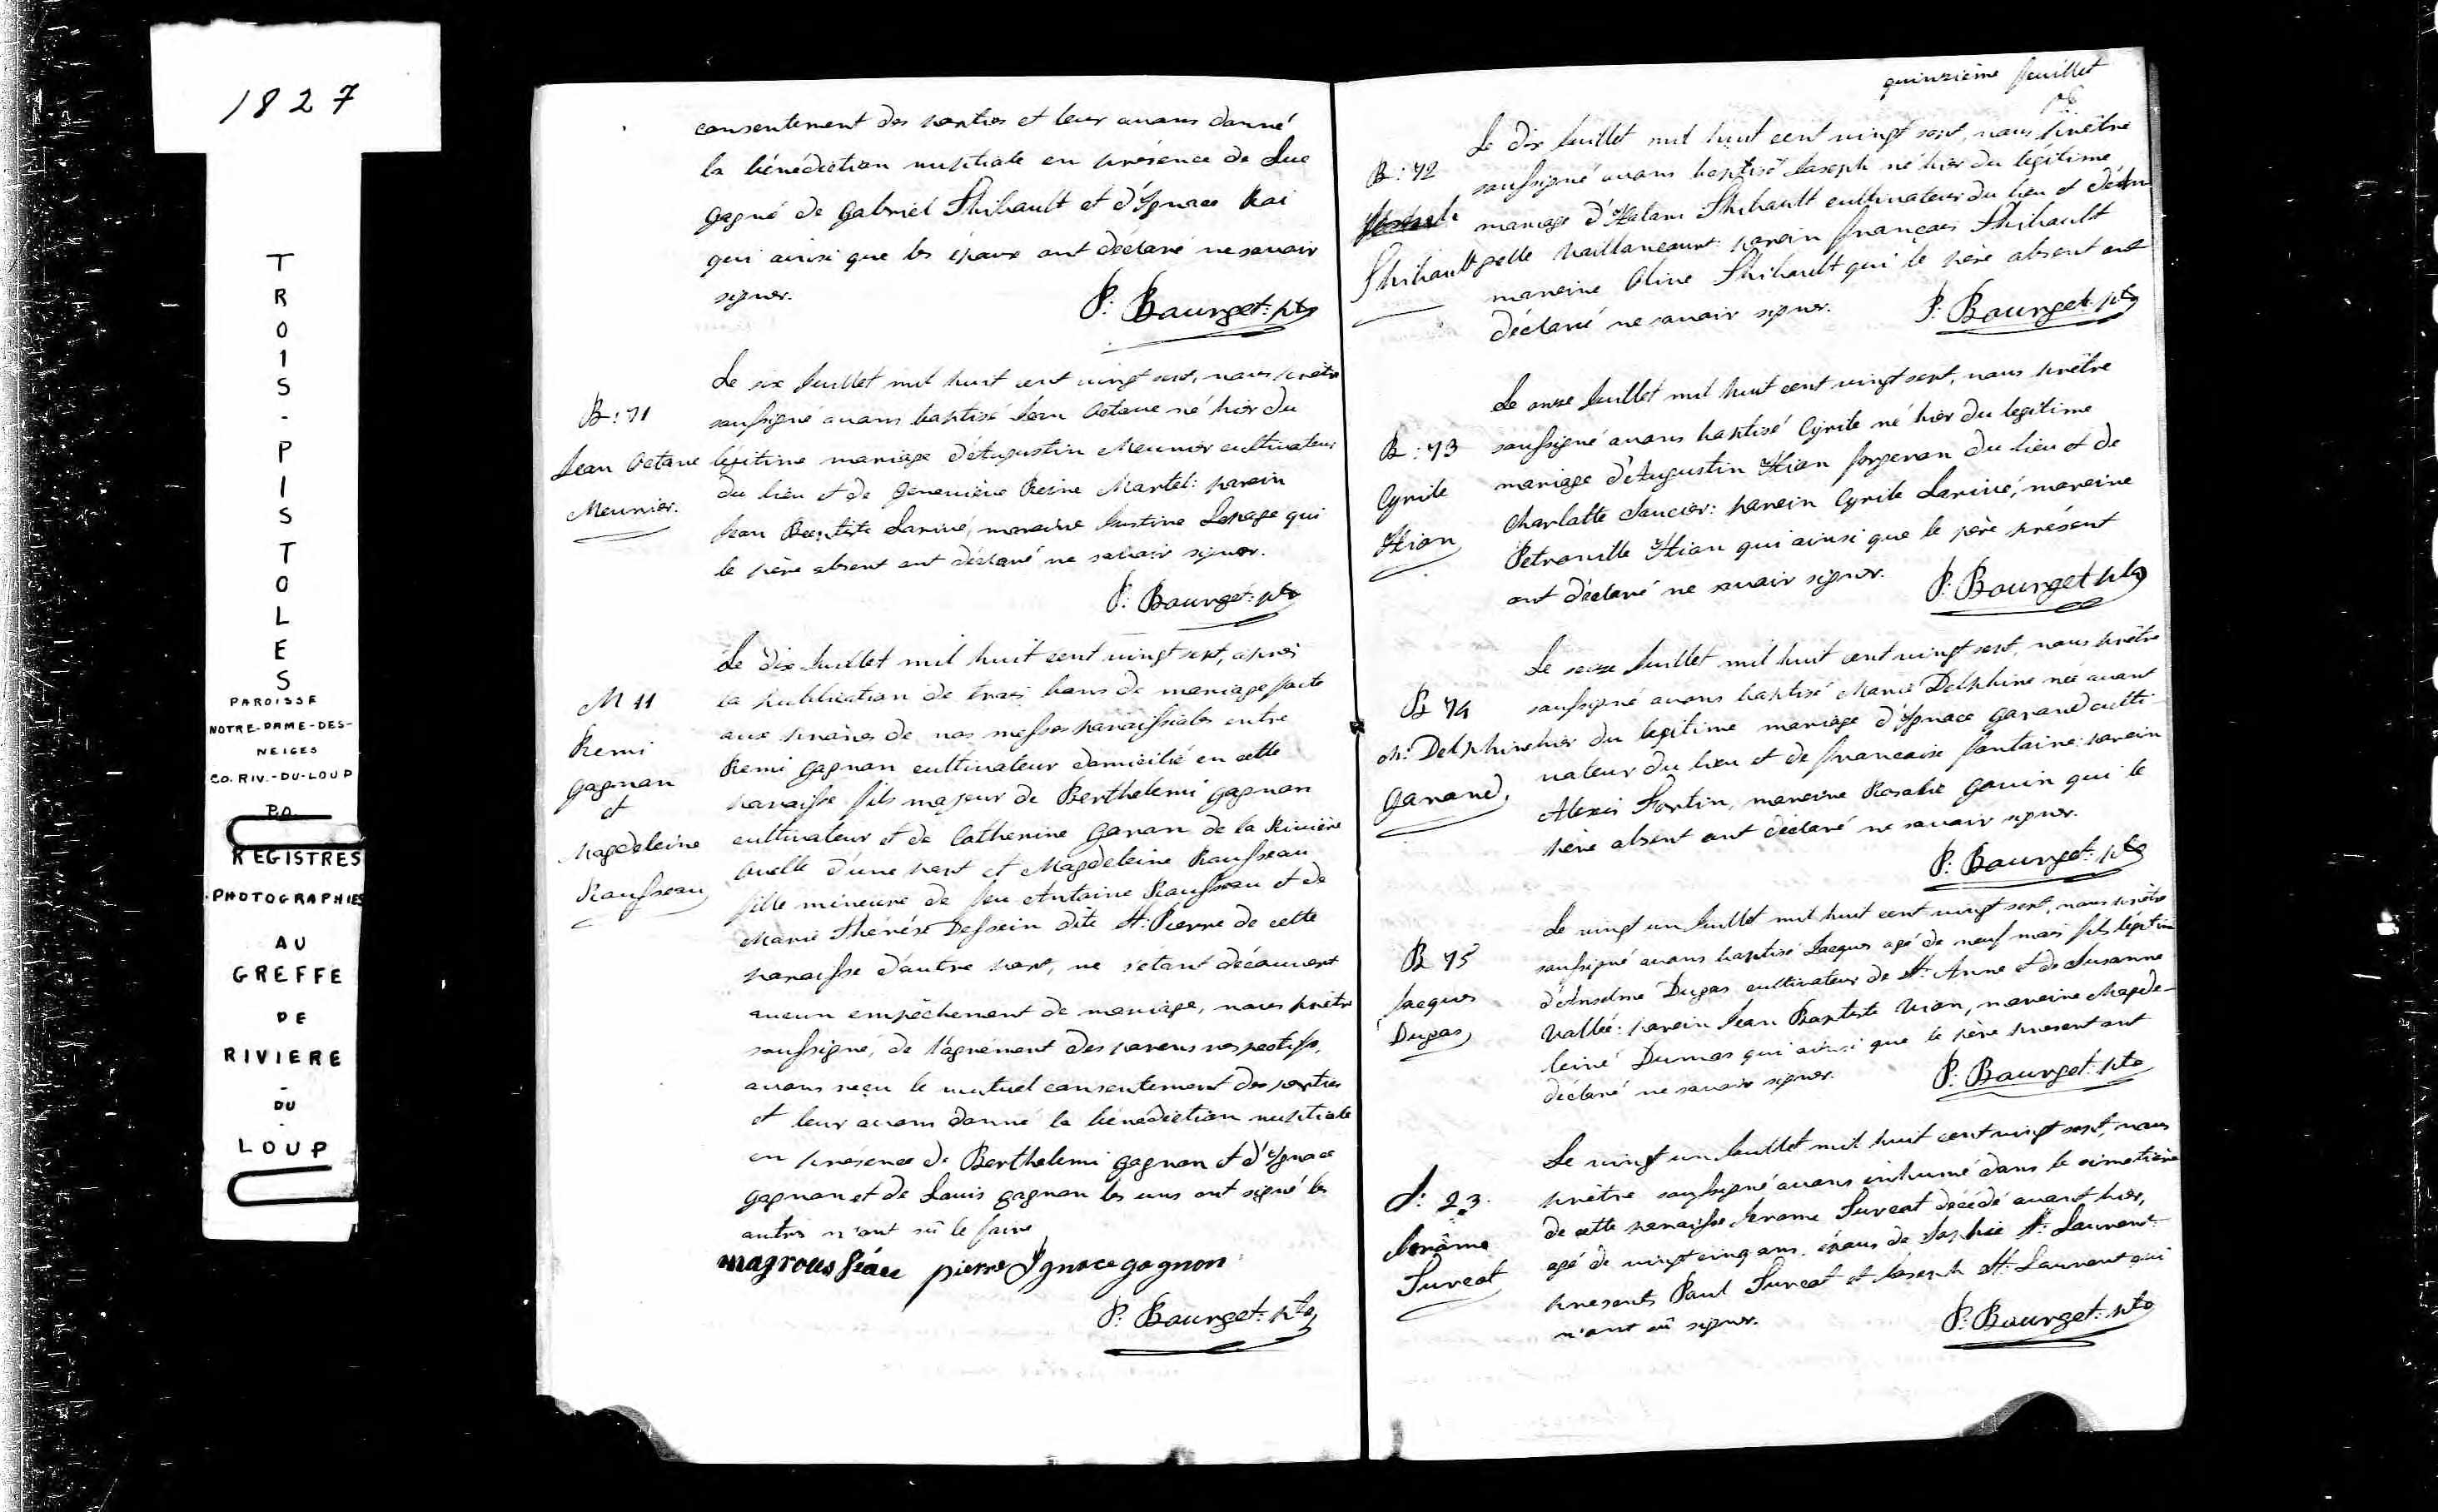 1827
TROIS-PISTOLES
PAROISSE
NOTRE-DAME-DES-
NEIGES
CO. RIV.-DU-LOUP
P.Q.
REGISTRES
PHOTOGRAPHIES
AU
GREFFE
DE
RIVIERE
-
DU
-
LOUP
consentement des parties et leur avons donné
la bénédiction nuptiale en présence de Luc
gagné de gabriel Thibault et d'Ignace Roi
qui ainsi que les épaux ont déclaré ne savoir
signer.
P: Bourget: ptre
B: 71
Jean Octave
Meunier.
Le six Juillet mil huit cent vingt sept, nous prêtre
soussigné avons baptisé Jean Octave né hier du
légitime mariage d'Augustin Meunier cultivateur
du lieu et de Geneviève Reine Martel: parein
Jean Baptiste Lariveé, mareine Justine Lepage qui
le père absent ont déclaré ne savoir signer.
P: Bourget: ptre
M 11
Remi
gagnon
et
Magdeleine
Rousseau
Le dix Juillet mil huit cent vingt sept, après
la publication de trois bans de mariage faite
aux prônes de nos messes paroissiales entre
Remi gagnon cultivateur domicilié en cette
paroisse fils majeur de Berthelemi gagnon
cultivateur et de Catherine garon de la Rivière
Ouelle d'une part et Magdeleine Rousseau
fille mineure de feu Antoine Rousseau et de
Marie Thérèse Dessein dite St. Pierre de cette
paroisse d'autre part, ne s'étant découvert
aucun empêchement de mariage, nous prêtre
soussigné, de l'agrément des parens respectifs,
avons reçu le mutuel consentement des parties
et leur avons donné la bénédiction nuptiale
en présence de Berthelemi gagnon et d'Ignace
gagnon et de Louis gagnon les uns ont signé les
autres n'ont sû le faire
magrousseau pierre Ignace gagnon
P: Bourget: ptre
quinzième feuillet
PB
B: 72
Thibault
Le dix Juillet mil huit cent vingt sept, nous prêtre
soussigné avons baptisé Joseph né hier du légitime
mariage d'Hilari Thibault cultivateur du lieu et d'An
gelle Vaillancourt: parein françois Thibault
mareine Olive Thibault qui le père absent ont
déclaré ne savoir signer.
P: Bourget: ptre
B: 73
Cyrile
Hion
Le onze Juillet mil huit cent vingt sept, nous prêtre
soussigné avons baptisé Cyrile né hier du legitime
mariage d'Augustin Hion forgeron du lieu et de
Charlotte Saucier: parein Cyrile Lariveé, mareine
Petronille Hion qui ainsi que le père présent
ont déclaré ne savoir signer.
P: Bourget ptre
B 74
M: Delphine
garand
Le seize Juillet mil huit cent vingt sept, nous prêtre
soussigné avons baptisé Marie Delphine née avant
hier du legitime mariage d'Ignace garand culti-
vateur du lieu et de francoise fontaine: parein
Alexis Fortin, mareine Rosalie gauvin qui le
père absent ont déclaré ne savoir signer.
P: Bourget: ptre
B 75
Jacques
Dugas
Le vingt un Juillet mil huit cent vingt sept, nous prêtre
soussigné avons baptisé Jacques agé de neuf mois fils légitime
d'Anselme Dugas cultivateur de St. Anne et de Susanne
Vallée: parein Jean Baptiste Rion, mareine Magde-
leine Dumas qui ainsi que le père present ont
déclaré ne savoir signer.
P: Bourget: ptre
S: 23.
Jerôme
Turcot
Le vingt un Juillet mil huit cent vingt sept, nous
prêtre soussigné avons inhumé dans le cimetière
de cette paroisse Jerome Turcot décédé avant hier,
agé de vingt cinq ans. épous de Sophie St. Laurent
presents Paul Turcot et Joseph St. Laurent qui
n'ont sû signer.
P: Bourget: ptre